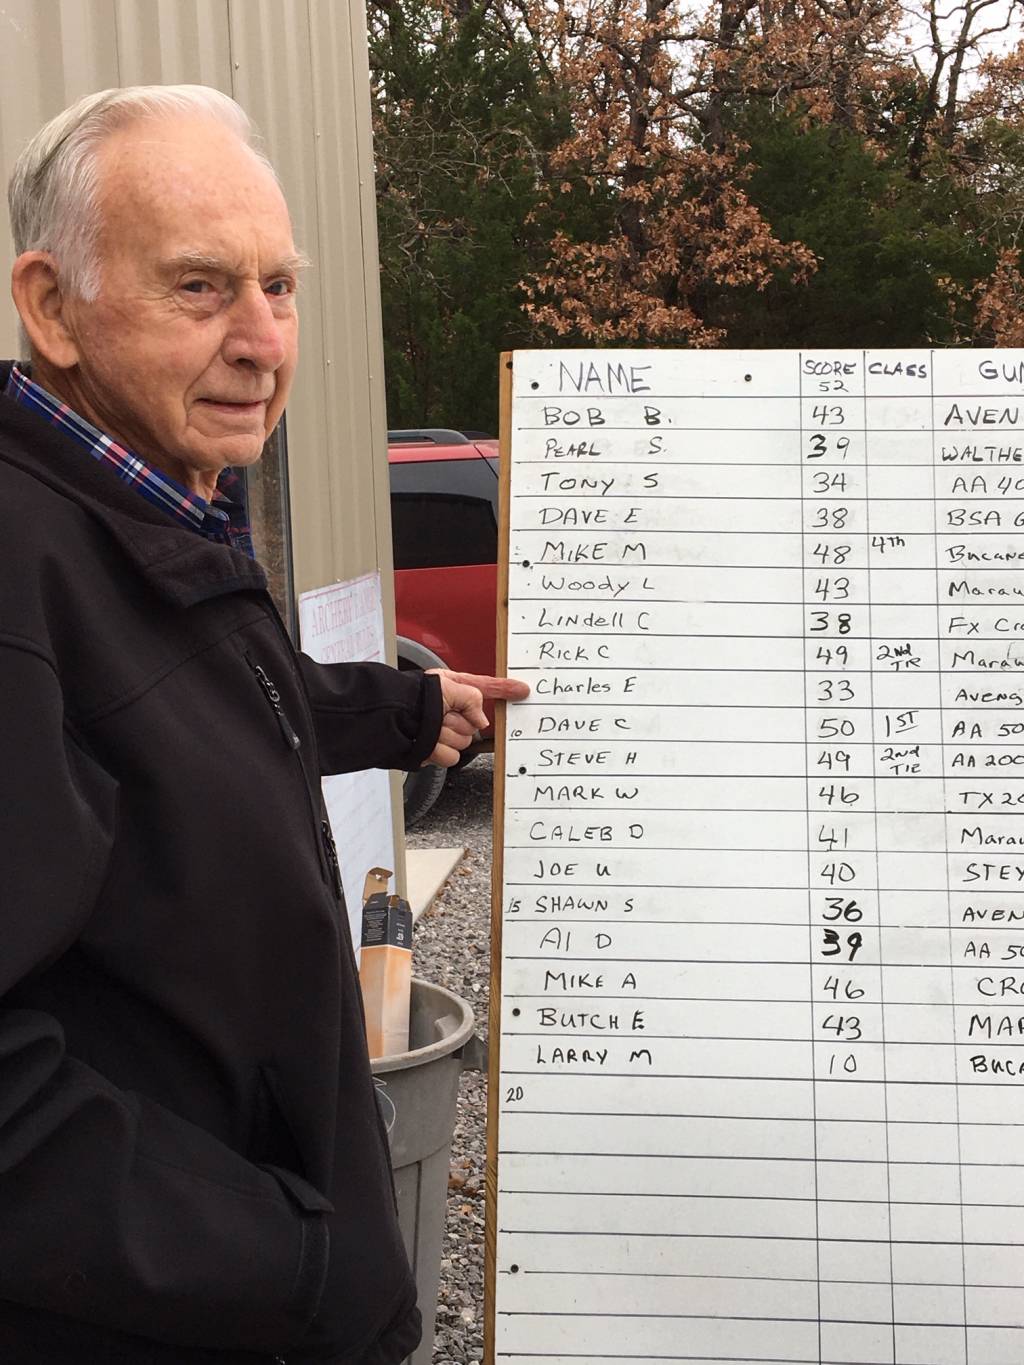 NAME SCORE 52 CLASS GUN
BOB B. 43 AVEN
PEARL S. 39 WALTHE
TONY S 34 AA 40
DAVE E 38 BSA G
MIKE M 48 4th Bucane
Woody L 43 Marau
Lindell C 38 FX Cr
RICK C 49 2nd TIE Marau
Charles E 33 AVENG
10 DAVE C 50 1ST AA 50
STEVE H 49 2nd TIE AA 200
MARK W 46 TX 20
CALEB D 41 Marau
JOE U 40 STEY
15 SHAWN S 36 AVEN
Al D 39 AA 50
MIKE A 46 CRO
BUTCH E 43 MAR
LARRY M 10 BUCA
20
ARCHERY RANGE